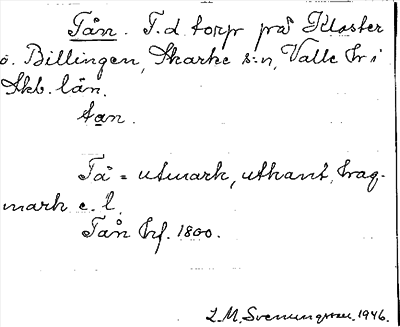 Tån. F.d. torp på Kloster
ö. Billingen, Skarke s:n, Valle hr i
Skb. län.
tan.
Tå = utmark, utkant, hag-
mark e. l.
Tån hf. 1800.
L.M. Svenungsson. 1946.